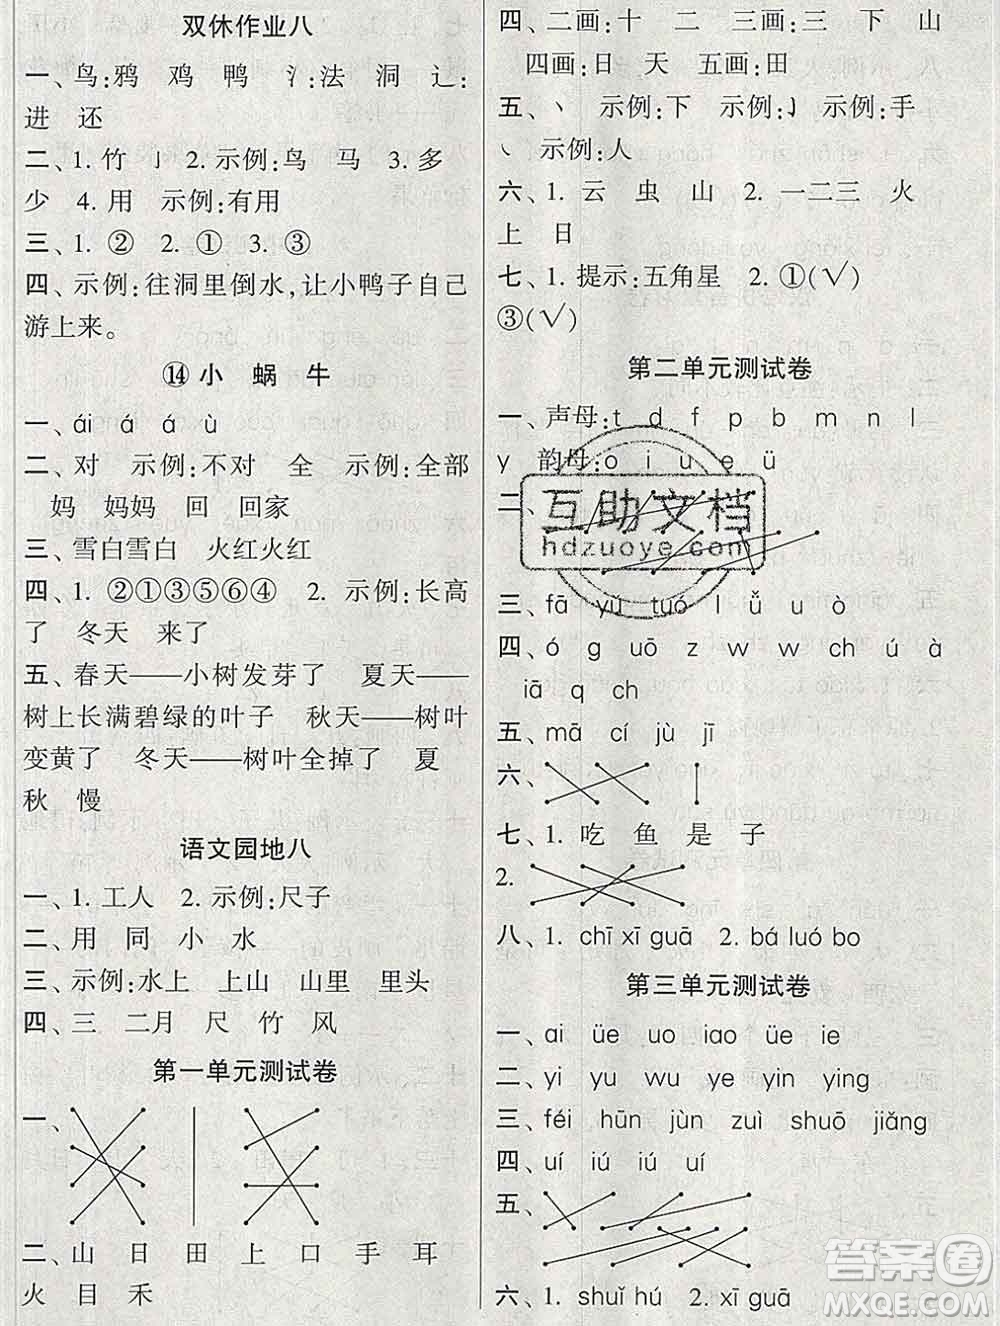 双休作业八
一、鸟:鸦 鸡 鸭 氵:法 洞 辶:
进 还
二、1. 竹 爿 2. 示例:鸟 马 3. 多
少 4. 用 示例:有用
三、1. ② 2. ① 3. ③
四、示例:往洞里倒水,让小鸭子自己
游上来。
⑭ 小 蜗 牛
一、ái á á ù
二、对 示例:不对 全 示例:全部
妈 妈妈 回 回家
三、雪白雪白 火红火红
四、1. ②①③⑤⑥④ 2. 示例:长高
了 冬天 来了
五、春天——小树发芽了 夏天——
树上长满碧绿的叶子 秋天——树叶
变黄了 冬天——树叶全掉了 夏
秋 慢
语文园地八
一、1. 工人 2. 示例:尺子
二、用 同 小 水
三、示例:水上 上山 山里 里头
四、三 二月 尺 竹 风
第一单元测试卷
一、
二、山 日 田 上 口 手 耳
火 目 禾
四、二画:十 二 三画:三 下 山
四画:日 天 五画:田
五、丶 示例:下 示例:亅 示例:手
㇏ 示例:人
六、1. 云 虫 山 2. 一二三 火
上 日
七、1. 提示:五角星 2. ①(√)
③(√)
第二单元测试卷
一、声母:t d f p b m n l
y 韵母:o i u e ü
二、
三、fā yù tuó l ǚ u ò
四、ó g uō z w w ch ú à
iā q ch
五、mā cí jù jī
六、
七、1. 吃 鱼 是 子
2.
八、1. chī xī guā 2. bá luó bo
第三单元测试卷
一、ai üe uo iao üe ie
二、yi yu wu ye yin ying
三、féi hūn jùn zuì shuō jiǎng
四、uí iú iú uí
五、
六、1. shuǐ hú 2. xī guā
互助文档
hdzuoye.com
答案圈
MXQE.COM